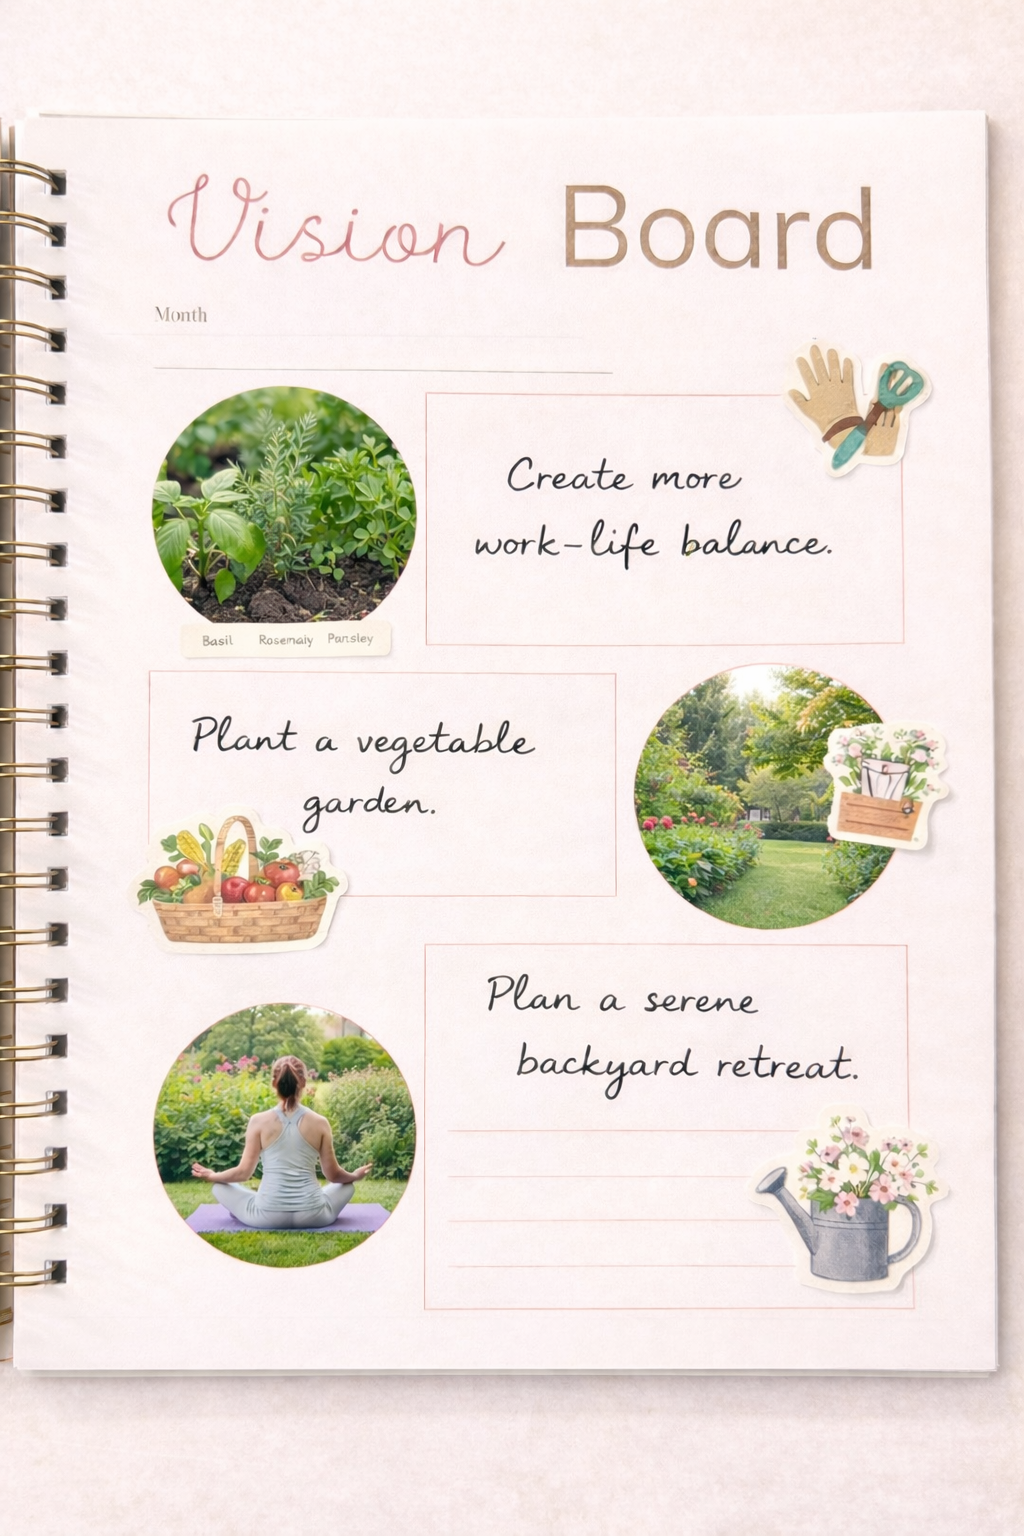 Vision Board
Month
Create more
work-life balance.
Basil Rosemaiy Parsley
Plant a vegetable
garden.
Plan a serene
backyard retreat.